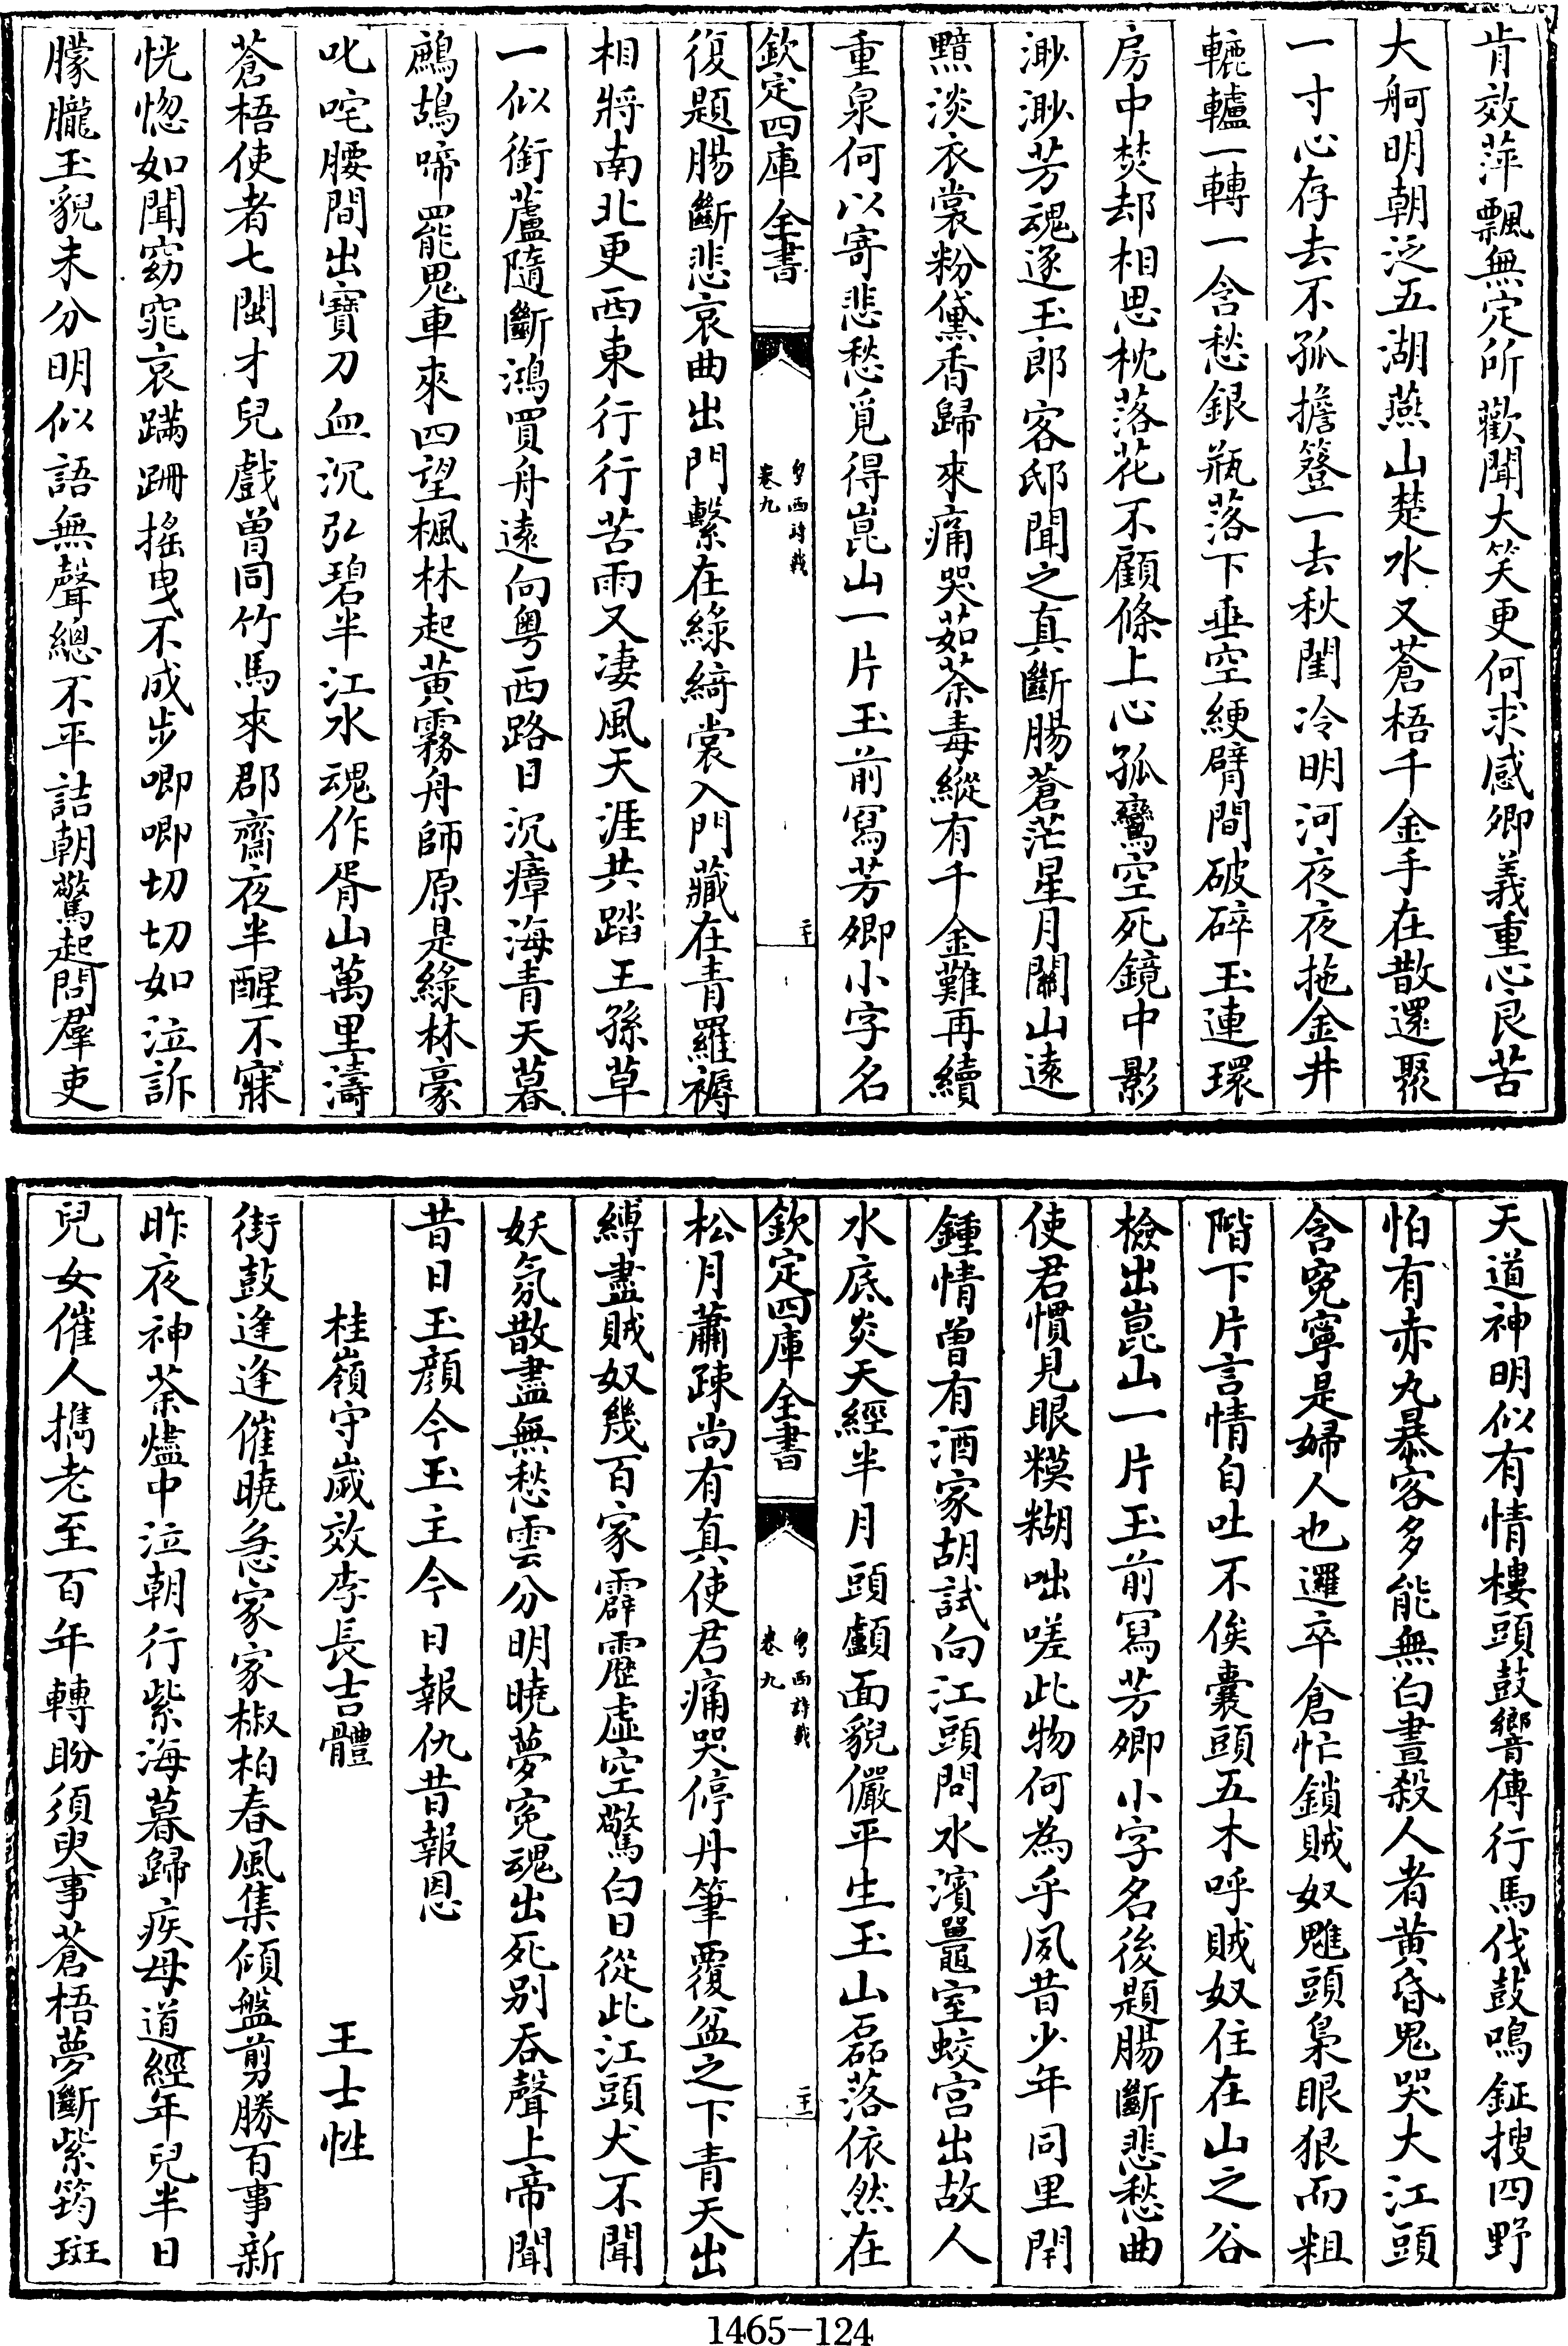 肯效萍飄無定所歡聞大笑更何求感卿義重心良苦
大舸明朝泛五湖燕山楚水又蒼梧千金手在散還聚
一寸心存去不孤擔簦一去秋閨冷明河夜夜拖金井
轆轤一轉一含愁銀瓶落下垂空綆臂間破碎玉連環
房中焚却相思枕落花不顧條上心孤鸞空死鏡中影
渺渺芳魂逐玉郎客邸聞之真斷腸蒼茫星月關山遠
黯淡衣裳粉黛香歸來痛哭茹荼毒縱有千金難再續
重泉何以寄悲愁覓得崑山一片玉前寫芳卿小字名
欽定四庫全書
粤西詩載
卷九
二十
復題腸斷悲哀曲出門繫在綠綺裳入門藏在青羅褥
相將南北更西東行行苦雨又凄風天涯共踏王孫草
一似銜蘆隨斷鴻買舟遠向粤西路日沉瘴海青天暮
鷓鴣啼罷鬼車來四望楓林起黄霧舟師原是綠林豪
叱咤腰間出寶刀血沉弘碧半江水魂作胥山萬里濤
蒼梧使者七閩才兒戲曽同竹馬來郡齋夜半醒不寐
恍惚如聞窈窕哀蹣跚搖曳不成步唧唧切切如泣訴
朦朧玉貌未分明似語無聲總不平詰朝驚起問羣吏
天道神明似有情樓頭鼓響傳行馬伐鼓鳴鉦搜四野
怕有赤丸暴客多能無白晝殺人者黄昏鬼哭大江頭
含寃寧是婦人也邏卒倉忙鎖賊奴魋頭梟眼狠而粗
階下片言情自吐不俟囊頭五木呼賊奴住在山之谷
檢出崑山一片玉前寫芳卿小字名後題腸斷悲愁曲
使君慣見眼糢糊咄嗟此物何為乎夙昔少年同里閈
鍾情曽有酒家胡試向江頭問水濱鼉室蛟宫出故人
水底炎天經半月頭顱面貌儼平生玉山磊落依然在
欽定四庫全書
粤西詩載
卷九
二十一
松月蕭疎尚有真使君痛哭停丹筆覆盆之下青天出
縛盡賊奴幾百家霹靂虚空驚白日從此江頭犬不聞
妖氛散盡無愁雲分明曉夢寃魂出死别吞聲上帝聞
昔日玉顔今玉主今日報仇昔報恩
桂嶺守歲效李長吉體　王士性
街鼓逢逢催曉急家家椒柏春風集傾盤剪勝百事新
昨夜神荼燼中泣朝行紫海暮歸疾母道經年兒半日
兒女催人攜老至百年轉盼須臾事蒼梧夢斷紫筠斑
1465-124